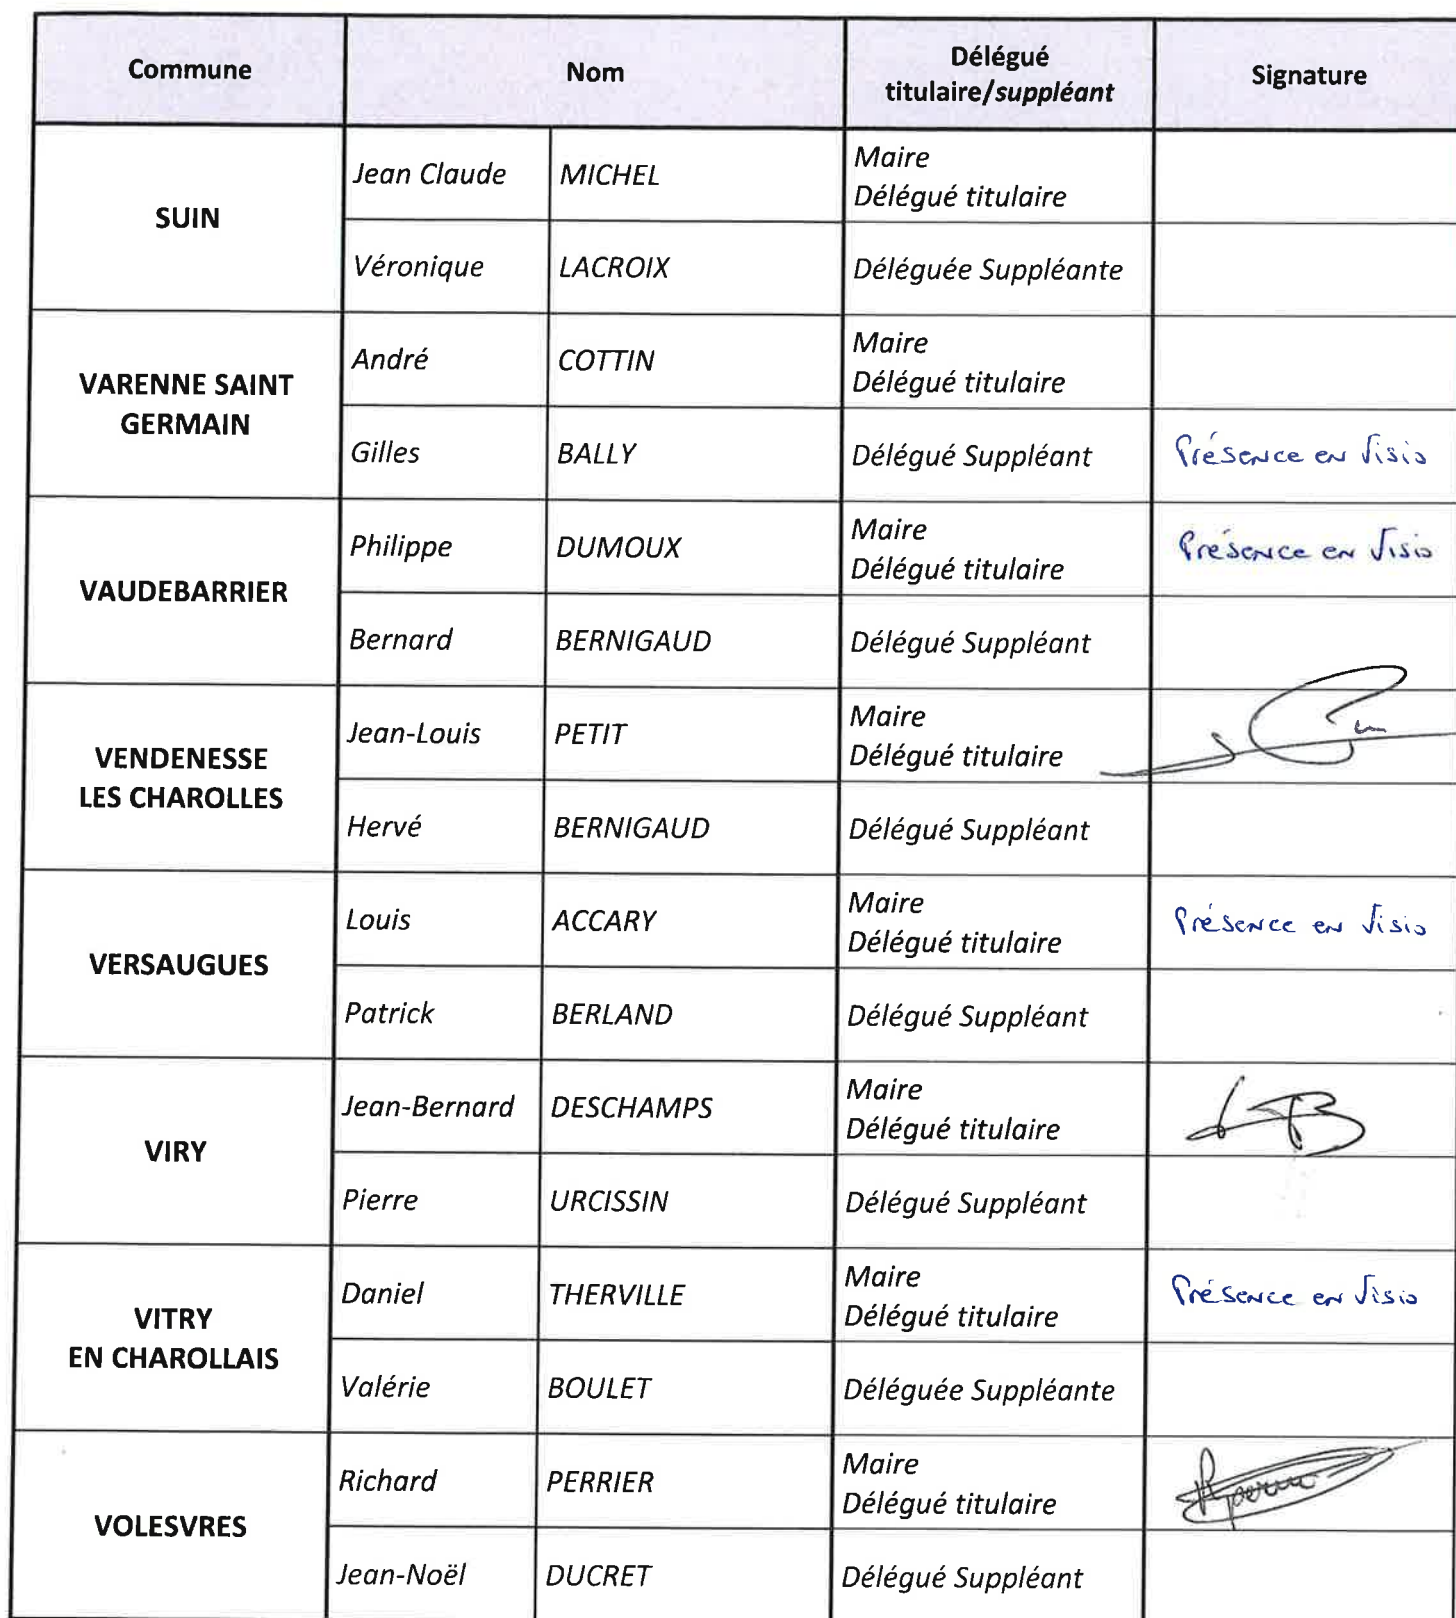 Commune Nom Délégué titulaire/suppléant Signature
SUIN
Jean Claude MICHEL Maire
Délégué titulaire
Véronique LACROIX Déléguée Suppléante
VARENNE SAINT
GERMAIN
André COTTIN Maire
Délégué titulaire
Gilles BALLY Délégué Suppléant Présence en Visio
VAUDEBARRIER
Philippe DUMOUX Maire
Délégué titulaire Présence en Visio
Bernard BERNIGAUD Délégué Suppléant
VENDENESSE
LES CHAROLLES
Jean-Louis PETIT Maire
Délégué titulaire
Hervé BERNIGAUD Délégué Suppléant
VERSAUGUES
Louis ACCARY Maire
Délégué titulaire Présence en Visio
Patrick BERLAND Délégué Suppléant
VIRY
Jean-Bernard DESCHAMPS Maire
Délégué titulaire
Pierre URCISSIN Délégué Suppléant
VITRY
EN CHAROLLAIS
Daniel THERVILLE Maire
Délégué titulaire Présence en Visio
Valérie BOULET Déléguée Suppléante
VOLESVRES
Richard PERRIER Maire
Délégué titulaire
Jean-Noël DUCRET Délégué Suppléant